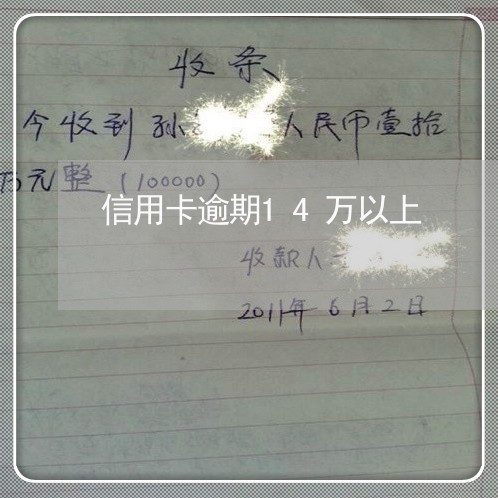 收条
今收到孙 人民币壹拾
万元整(100000)
信用卡逾期14万以上
收款人
2011年6月2日